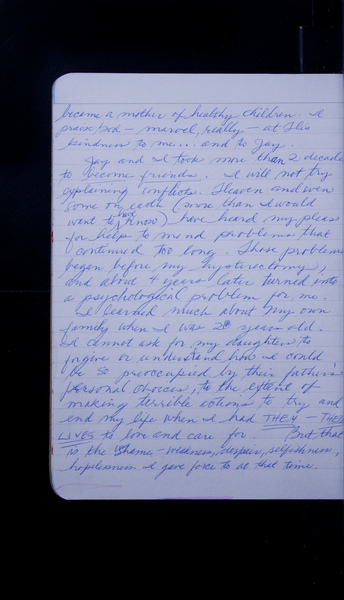 become a mother of healthy children. I
praise God — marvel, really — at His
kindness to me... and to Jay.
Jay and I took more than 2 decades
to become friends. I will not try
explaining conflicts. Heaven and even
some on earth (more than I would
want to had know) have heard my pleas
for help to mend problems that
continued too long. Those problems
began before my hysterectomy,
and about 4 years later turned into
a psychological problem for me.
I learned much about my own
family when I was 20 years old.
I cannot ask for my daughters to
forgive or understand how I could
be so preoccupied by their father's
personal choices, to the extent of
making terrible actions to try and
end my life when I had THEM — THEIR
LIVES to love and care for. But that
is the shame — weakness, despair, selfishness,
hopelessness I gave force to at that time.